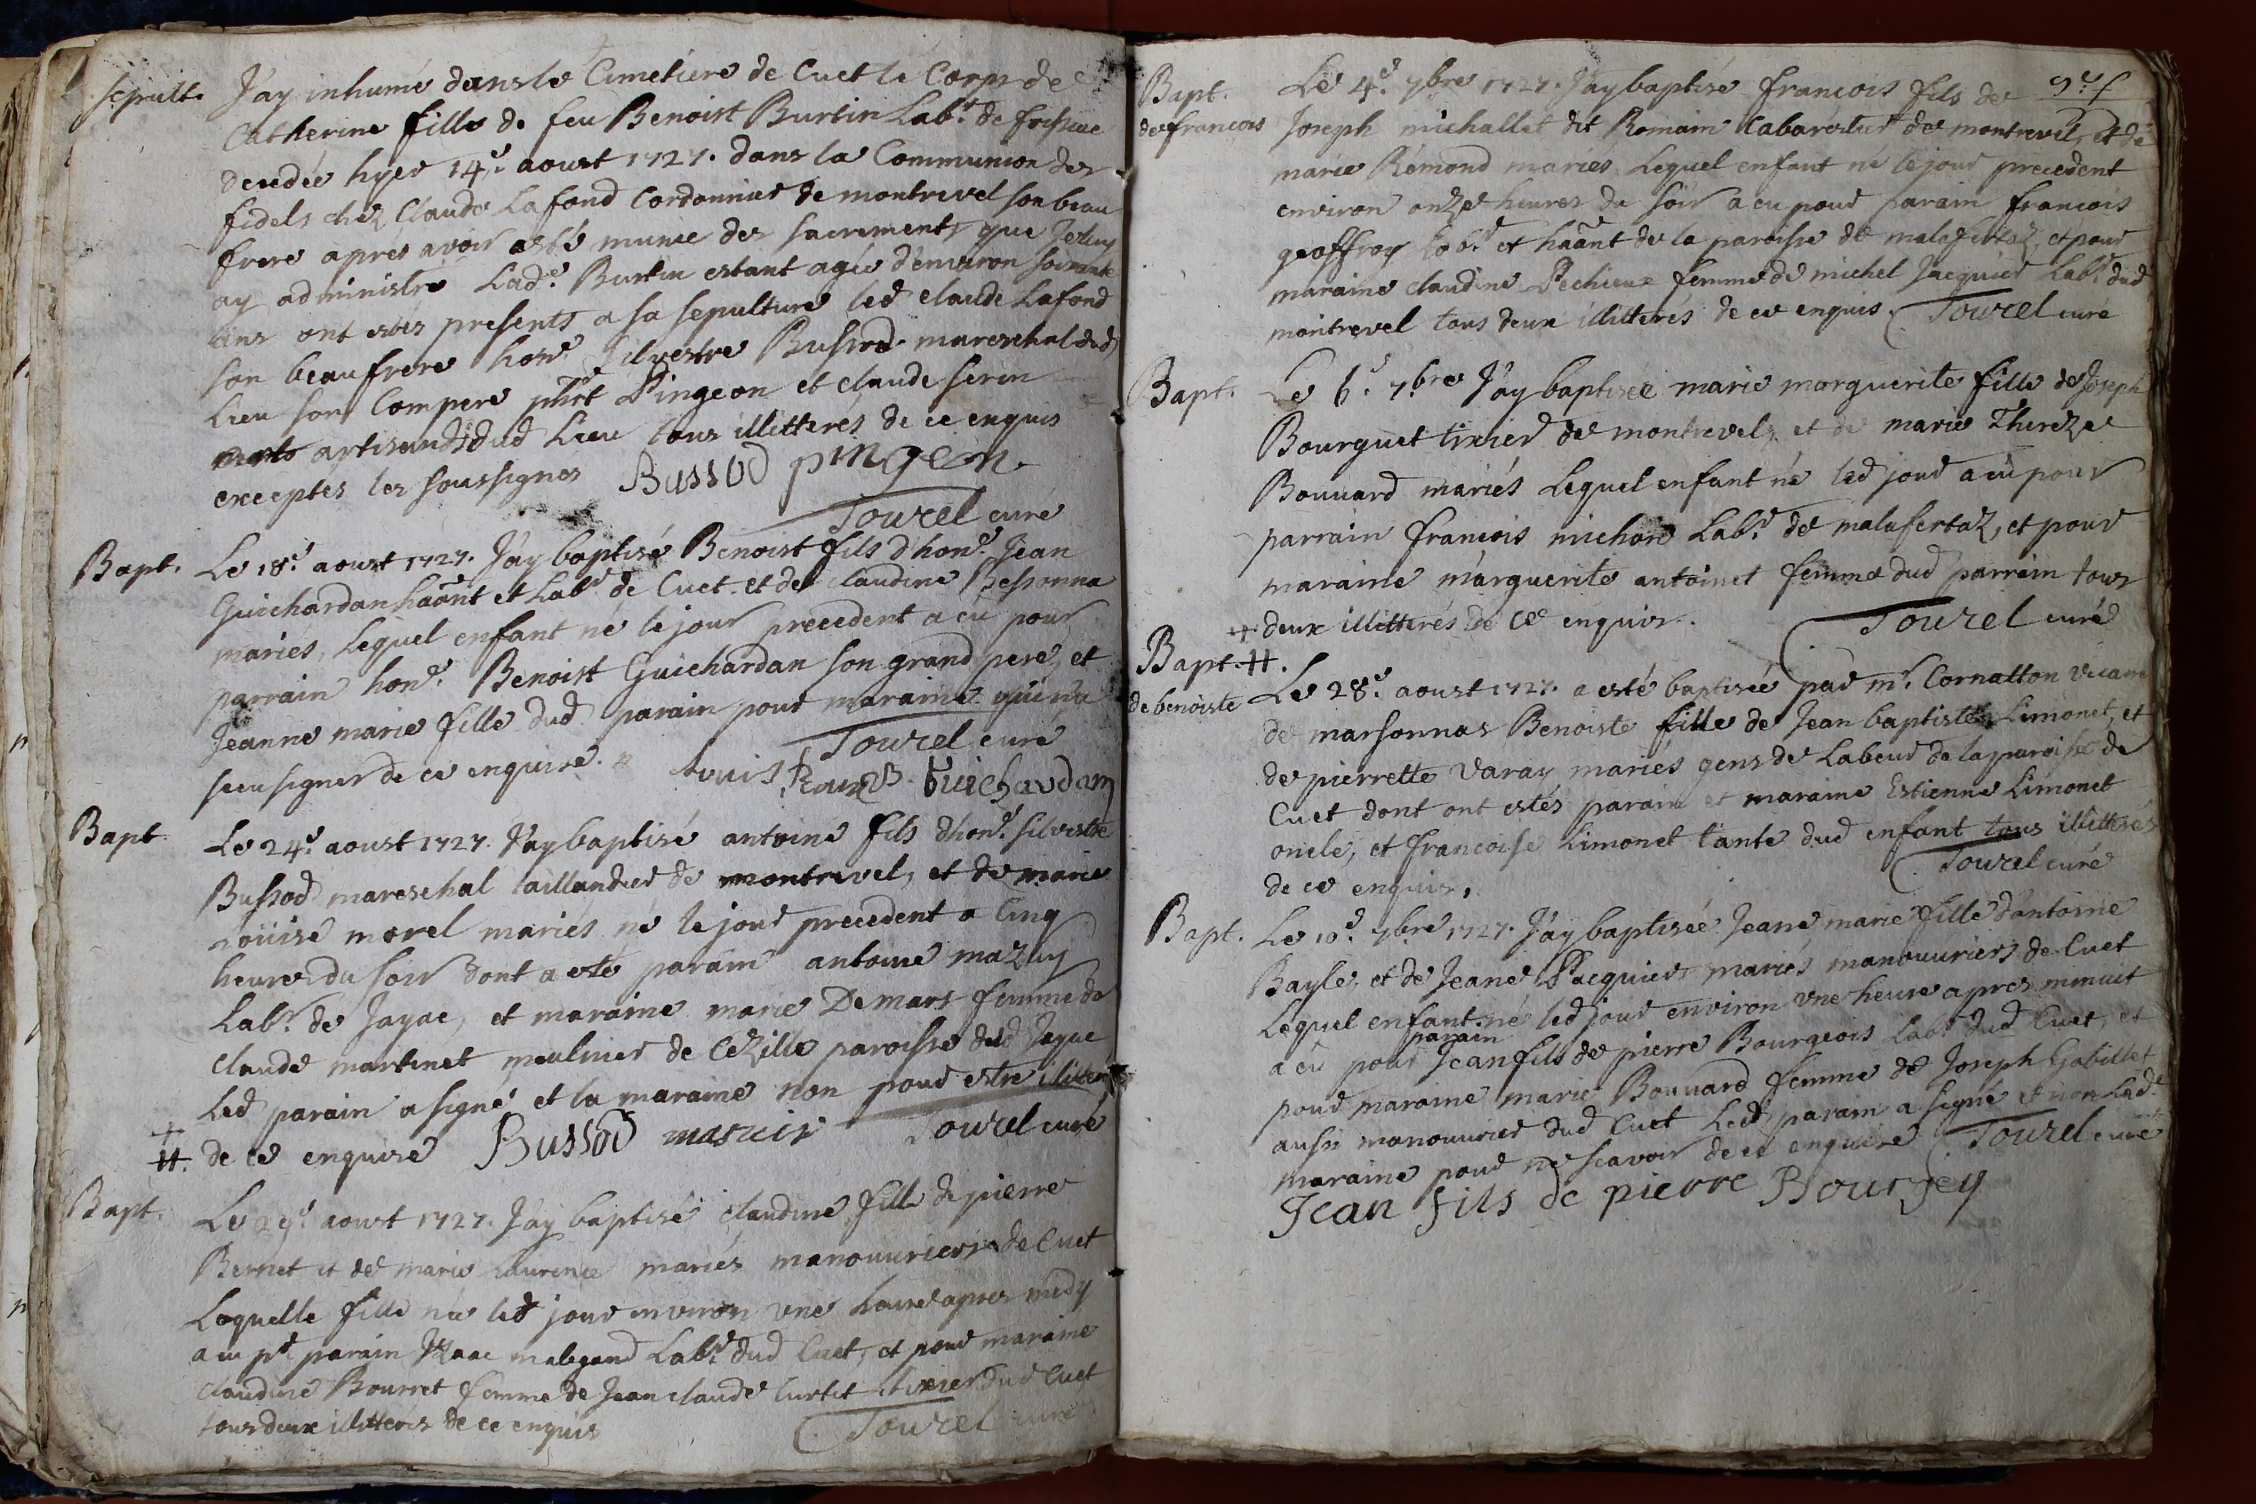 Sepult. J'ay inhumé dans le Cimetiere de Cuet le Corps de
Catherine fille de feu Benoist Burtin Lab.r de
decedée hyer 14.e aoust 1727. dans la Communion des
fidels chez Claude Lafond Cordonnier de montrevel son beau
frere aprés avoir esté munie des sacrements que Je luy
ay administré Lad.e Burtin estant agée d'environ soixante
ans ont estés presents a sa sepulture led Claude Lafond
son beaufrere hon.e Silvestre Bussod mareschal dud
Lieu son Compere Pingeon et claude serin
artisands dud Lieu tous illitterés de ce enquis
exceptés les soussignés Bussod pingeon
Tourel curé
Bapt. Le 18.e aoust 1727. J'ay baptisé Benoist fils d'hon.e Jean
Guichardan haãnt et Lab.r de Cuet et de claudine Bessonna
mariés, Lequel enfant né le jour precedent a eu pour
parrain hon.e Benoist Guichardan son grand pere, et
Jeanne marie fille dud parain pour maraine qui n'a
sceu signer de ce enquise. Tourel curé
Guichardan
Bapt. Le 24.e aoust 1727. J'ay baptisé antoine fils d'hon.e silvestre
Bussod mareschal taillandier de montrevel, et de marie
Loüise morel mariés né le jour precedent a Cinq
heures du soir dont a esté parain antoine mazuy
Lab.r de Jayac, et maraine marie Demars femme de
Claude martinet meulnier de Cézille paroisse dud Jayac
Led parain a signé et la maraine non pour estre
de ce enquise Bussod Tourel curé
Bapt. Le 29.e aoust 1727. J'ay baptisé claudine fille de pierre
Bernet et de marie Laurence mariés manouuriers de Cuet
Laquelle fille née led jour environ vne heure apres midy
a eu p.r parain Izaac malegand Lab.r dud Cuet, et pour maraine
claudine Bourret femme de Jean claude Curtet tixier dud Cuet
tous deux illitterés de ce enquis Tourel curé
Bapt. de francois Le 4.e 7bre 1727. J'ay baptisé francois fils de
Joseph michallet dit Romain Cabaretier de montrevel, et de
marie Rémond mariés, Lequel enfant né le jour precedent
environ onze heures du soir a eu pour parain francois
geoffroy Lab.r et haãnt de la paroisse de malafertaz, et pour
maraine claudine Pechieux femme de michel Jacquier Lab.r dud
montrevel tous deux illitterés de ce enquis Tourel curé
Bapt. Le 6.e 7.bre J'ay baptisée marie marguerite fille de Joseph
Bourguet tixier de montrevel, et de marie Thereze
Bouuard mariés Lequel enfant né led jour a eu pour
parrain francois michon Lab.r de malafertaz, et pour
maraine marguerite antoinet femme dud parrain tous
deux illitterés de ce enquis. Tourel curé
Bapt. de benoiste Le 28.e aoust 1727. a esté baptisée par m.r Cornatton vicaire
de marsonnas Benoiste fille de Jean baptiste Limonet, et
de pierrette Varay mariés gens de Labeur de la paroisse de
Cuet dont ont estés parain et maraine Estienne Limonet
oncle, et francoise Limonet tante dud enfant tous illitterés
de ce enquis, Tourel curé
Bapt. Le 10.e 7bre 1727. J'ay baptisée Jeane marie fille d'antoine
Bayle, et de Jeane Pacquier mariés manouuriers de Cuet
Lequel enfant né led jour environ vne heure apres minuit
a eu pour parain Jean fils de pierre Bourgeois Lab.r dud Cuet, et
pour maraine marie Bouuard femme de Joseph Gabillet
aussi manouurier dud Cuet Led parain a signé et non Lad.e
maraine pour ne scavoir de ce enquise Tourel curé
Jean fils de pierre Bourgey